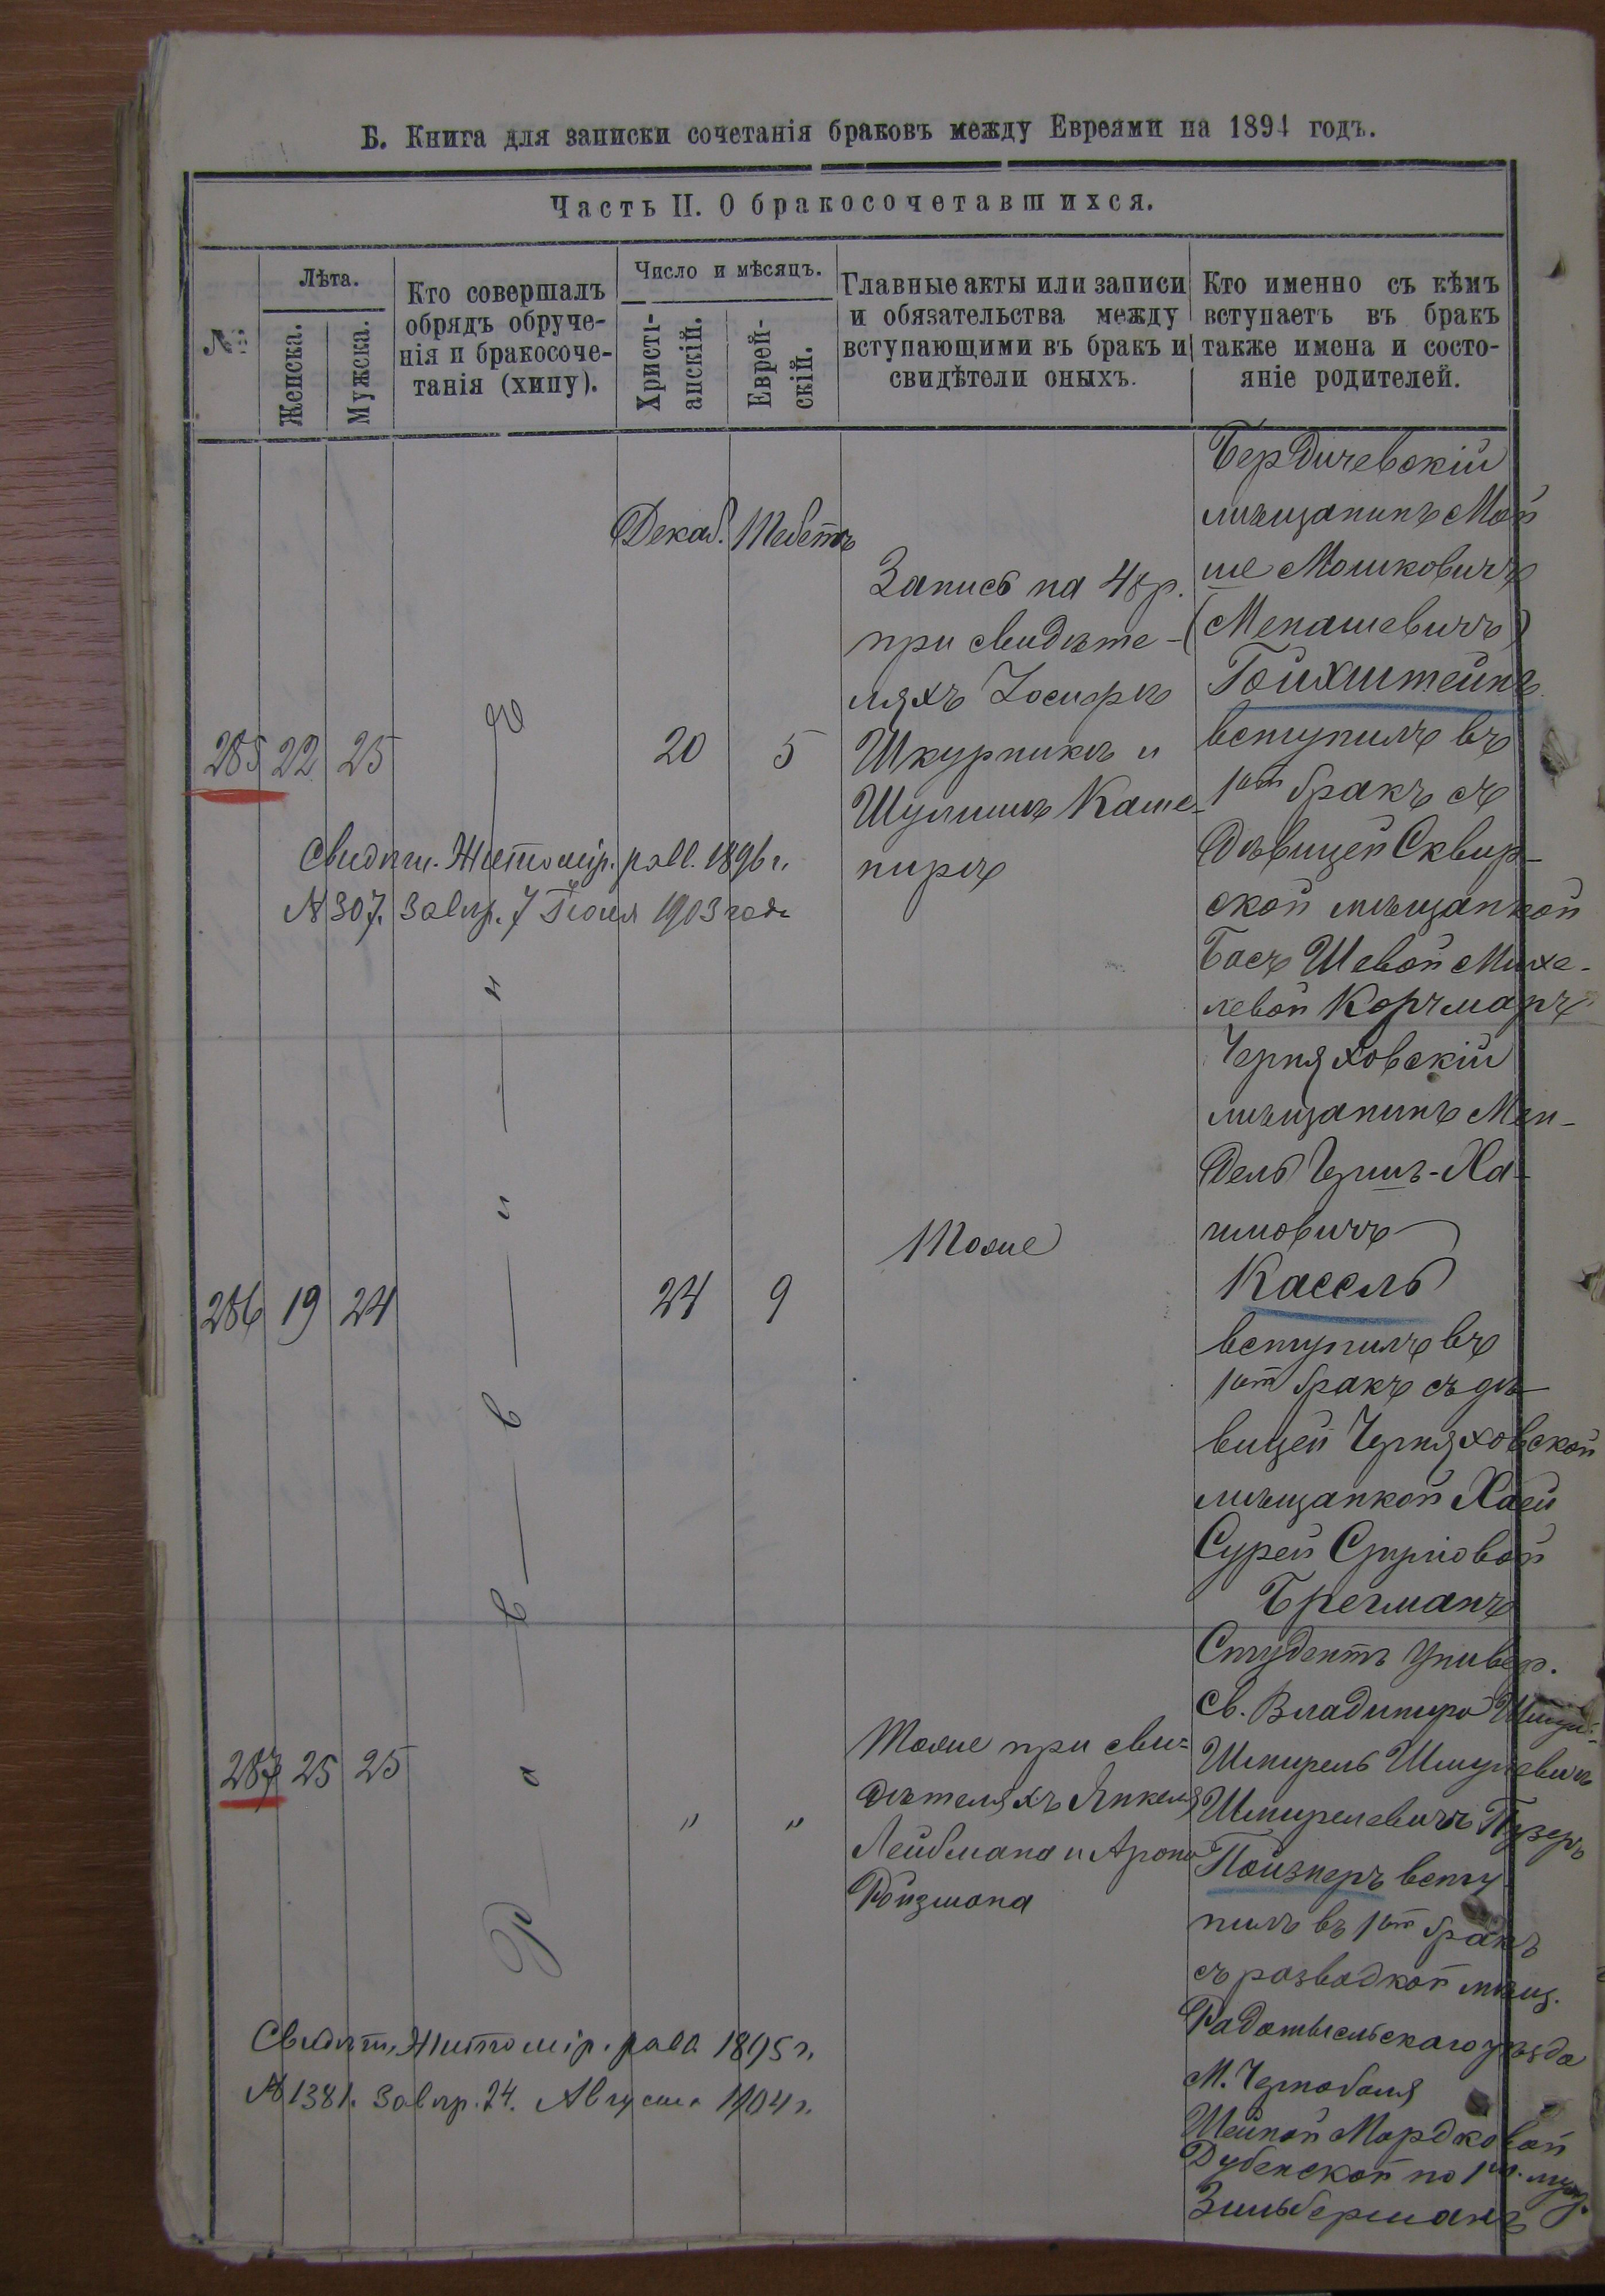 Б. Книга для записки сочетанія браковъ между Евреями на 1894 годъ.
Часть II. О бракосочетавшихся.
№
Лѣта.
Женска.
Мужска.
Кто совершалъ
обрядъ обруче-
нія и бракосоче-
танія (хипу).
Число и мѣсяцъ.
Христі-
анскій.
Еврей-
скій.
Главные акты или записи
и обязательства между
вступающими въ бракъ и
свидѣтели оныхъ.
Кто именно съ кѣмъ
вступаетъ въ бракъ
также имена и состо-
яніе родителей.
Декаб. Тебетъ
285 22 25
20 5
Запись на 48 р.
при свидѣте-
ляхъ Іосифѣ
Шкурникъ и
Шулимъ Каме-
ниръ
Бердичевскій
мѣщанинъ Мой
ше Мошковичъ
(Менашевичъ)
Гойхштейнъ
вступилъ въ
1ый бракъ съ
дѣвицей Сквир-
ской мѣщанкой
Басъ Шевой Михе-
левой Корчмаръ
Свидѣт. Житомір. равв. 1896 г.
№ 307. Завѣр. 7 Іюля 1903 года
Раввинъ
286 19 24
24 9
Тоже
Черняховскій
мѣщанинъ Мен-
дель Гершъ-Ха-
имовичъ
Кассель
вступилъ въ
1ый бракъ съ дѣ-
вицей Черняховской
мѣщанкой Хаей
Сурей Сруліовой
Брегманъ
287 25 25
" "
Тоже при сви-
дѣтеляхъ Янкеля
Лейбмана и Арона
Ройзмана
Студентъ Универ.
св. Владимира
Шмерель Шмулевичъ
Шмерелевичъ
Пойзнеръ всту
пилъ въ 1ый бракъ
съ разводкой мѣщ.
Радомысльскаго уѣзда
М. Чернобыля
Шейной Мордковой
Дубенской по 1м. муж.
Зильберманъ
Свидѣт. Житомір. равв. 1895 г.
№ 1381. Завѣр. 24. Августа 1904 г.